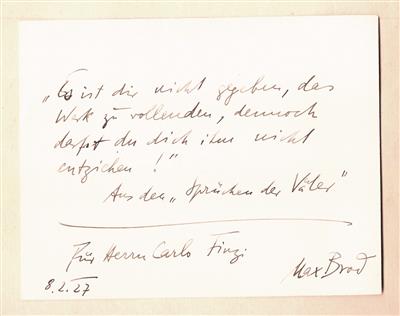 „Es ist dir nicht gegeben, das
Werk zu vollenden, dennoch
darfst du dich ihm nicht
entziehen!"
Aus den „Sprüchen der Väter"
Für Herrn Carlo Finzi
8.2.27 Max Brod